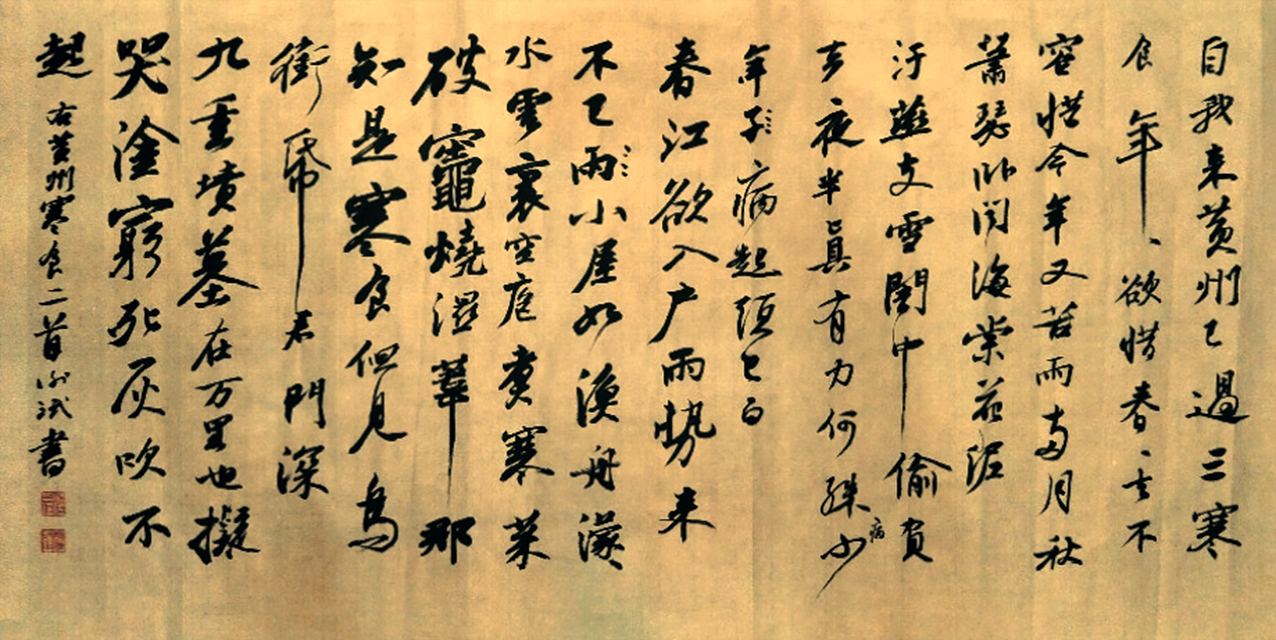 自我来黄州已過三寒
食年、欲惜春、去不
容惜今年又苦雨兩月秋
蕭瑟卧聞海棠花泥
汙燕支雪闇中偷負
去夜半真有力何殊病少
年子病起須已白
春江欲入户雨勢来
不已雨小屋如漁舟濛
水雲裏空庖煮寒菜
破竈燒濕葦那
知是寒食但見烏
銜帋君門深
九重墳墓在万里也擬
哭塗窮死灰吹不
起 右黄州寒食二首 書